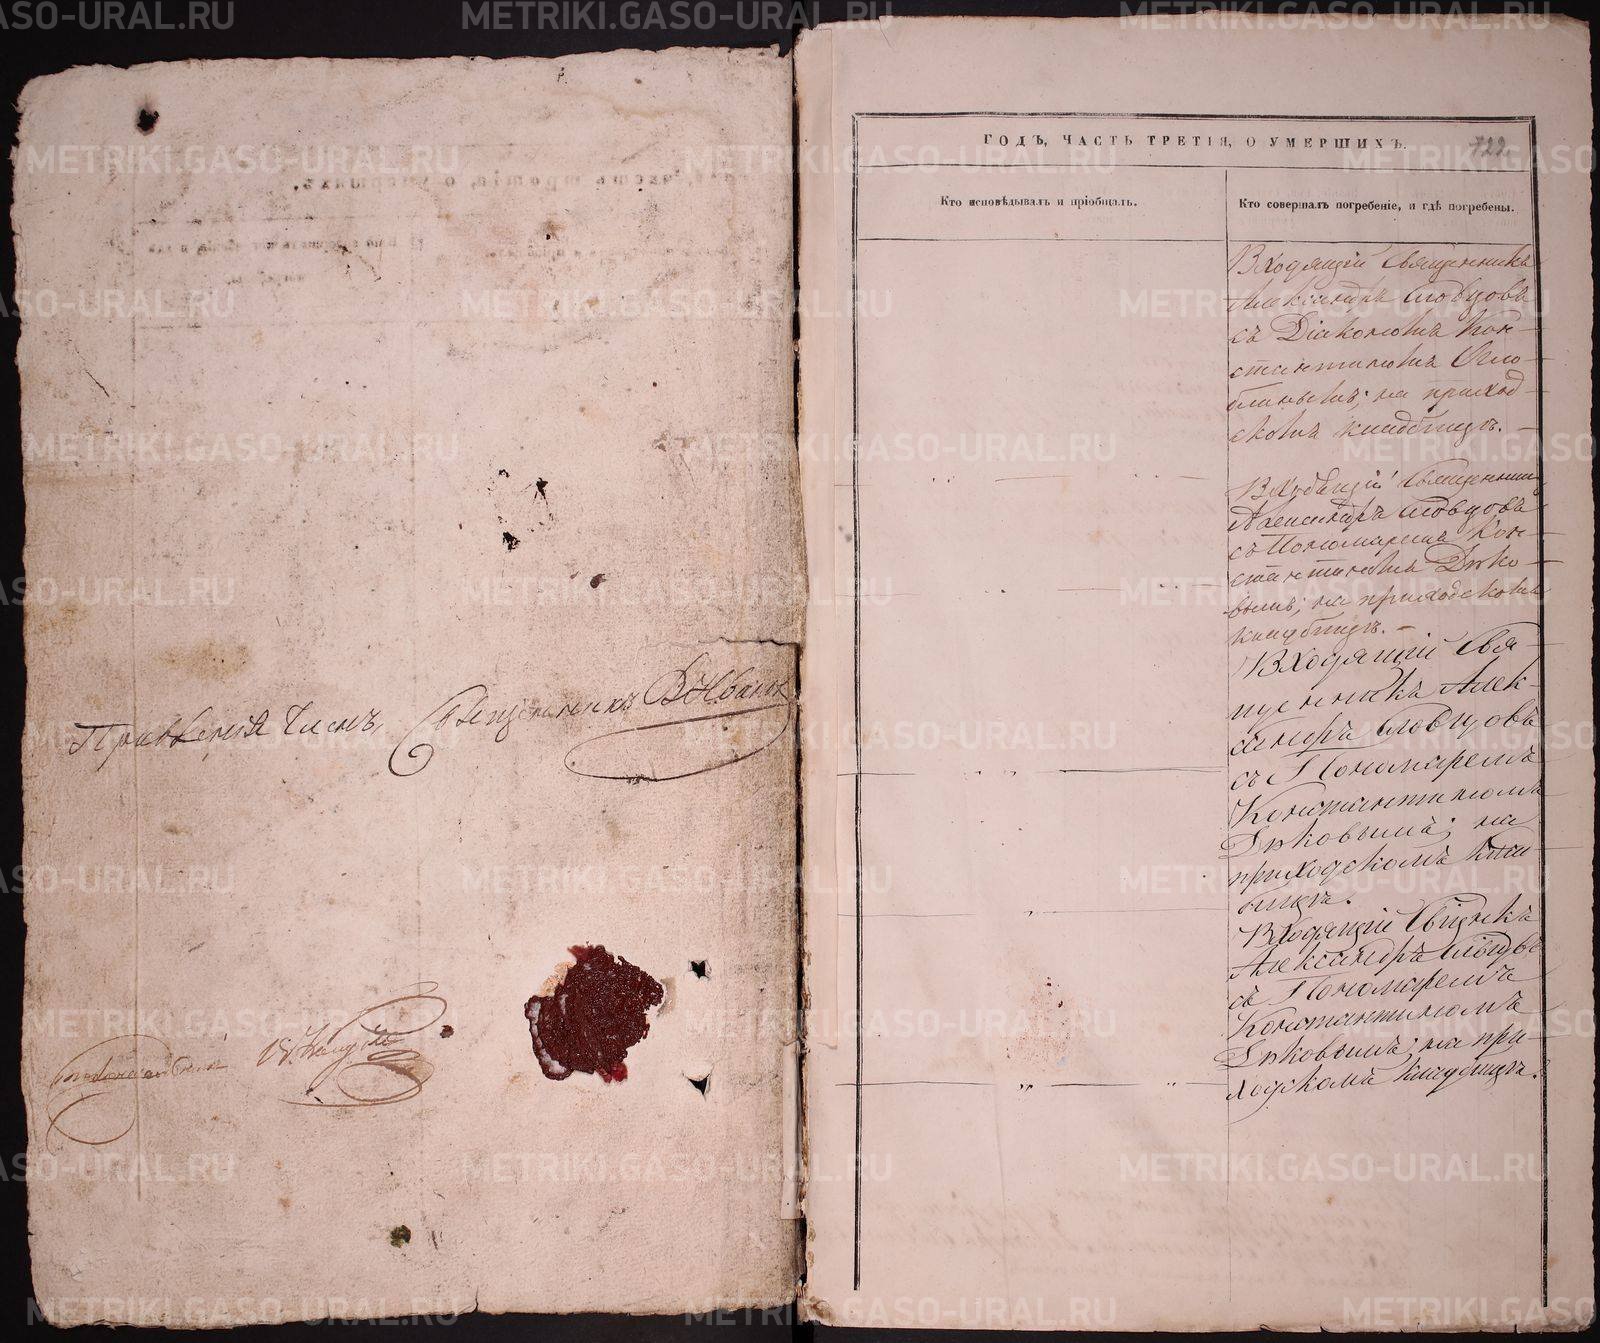 Правленія Членъ, Священникъ
ГОДЪ, ЧАСТЬ ТРЕТІЯ, О УМЕРШИХЪ.
722.
Кто исповѣдывалъ и пріобщалъ.
Кто совершалъ погребеніе, и гдѣ погребены.
Входящій Священникъ
Александръ Словцовъ
съ Діакономъ Кон-
стантиномъ Огло-
блинымъ; на приход-
скомъ кладбищѣ.
Входящій Священникъ
Александръ Словцовъ
съ Пономаремъ Кон-
стантиномъ Дѣко-
вымъ; на приходскомъ
кладбищѣ.
Входящій Свя-
щенникъ Алек-
сандръ Словцовъ
съ Пономаремъ
Константиномъ
Дѣковымъ; на
приходскомъ клад
бищѣ.
Входящій Свщнкъ
Александръ Словцовъ
съ Пономаремъ
Константиномъ
Дѣковымъ; на при-
ходскомъ кладбищѣ.
METRIKI.GASO-URAL.RU